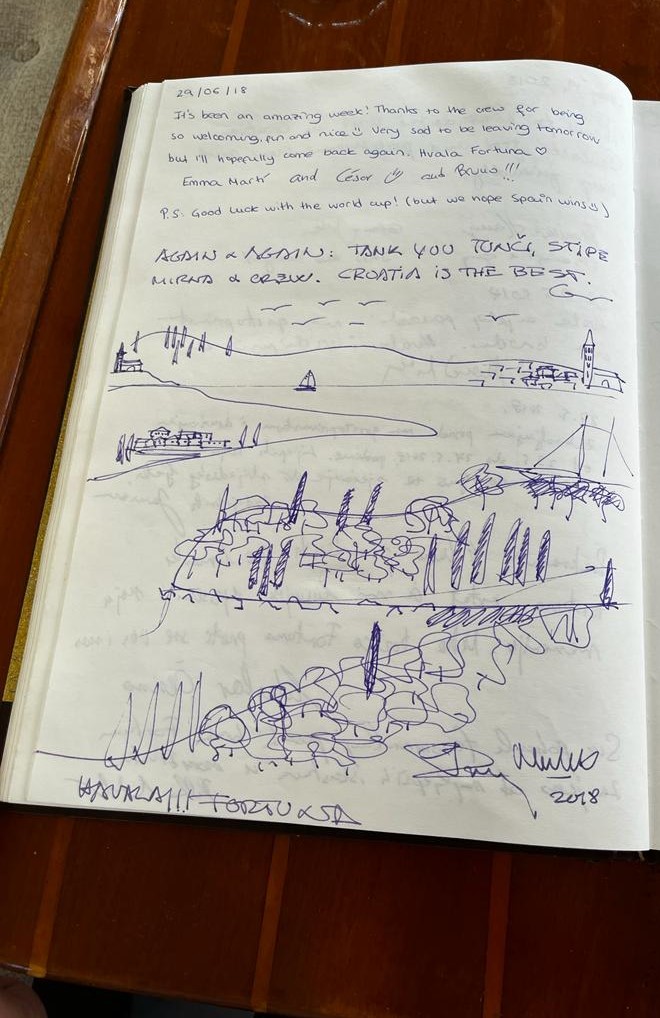 29/06/18
It's been an amazing week! Thanks to the crew for being
so welcoming, fun and nice☺ Very sad to be leaving tomorrow
but I'll hopefully come back again. Hvala Fortuna ♡
Emma Martí and César ☺ and Bruno!!!
P.S: Good luck with the world cup! (but we hope Spain wins☺)
AGAIN & AGAIN: TANK YOU TONČI, STIPE
MIRNA & CREW. CROATIA IS THE BEST.
2018
HAVALA!!! FORTUNA